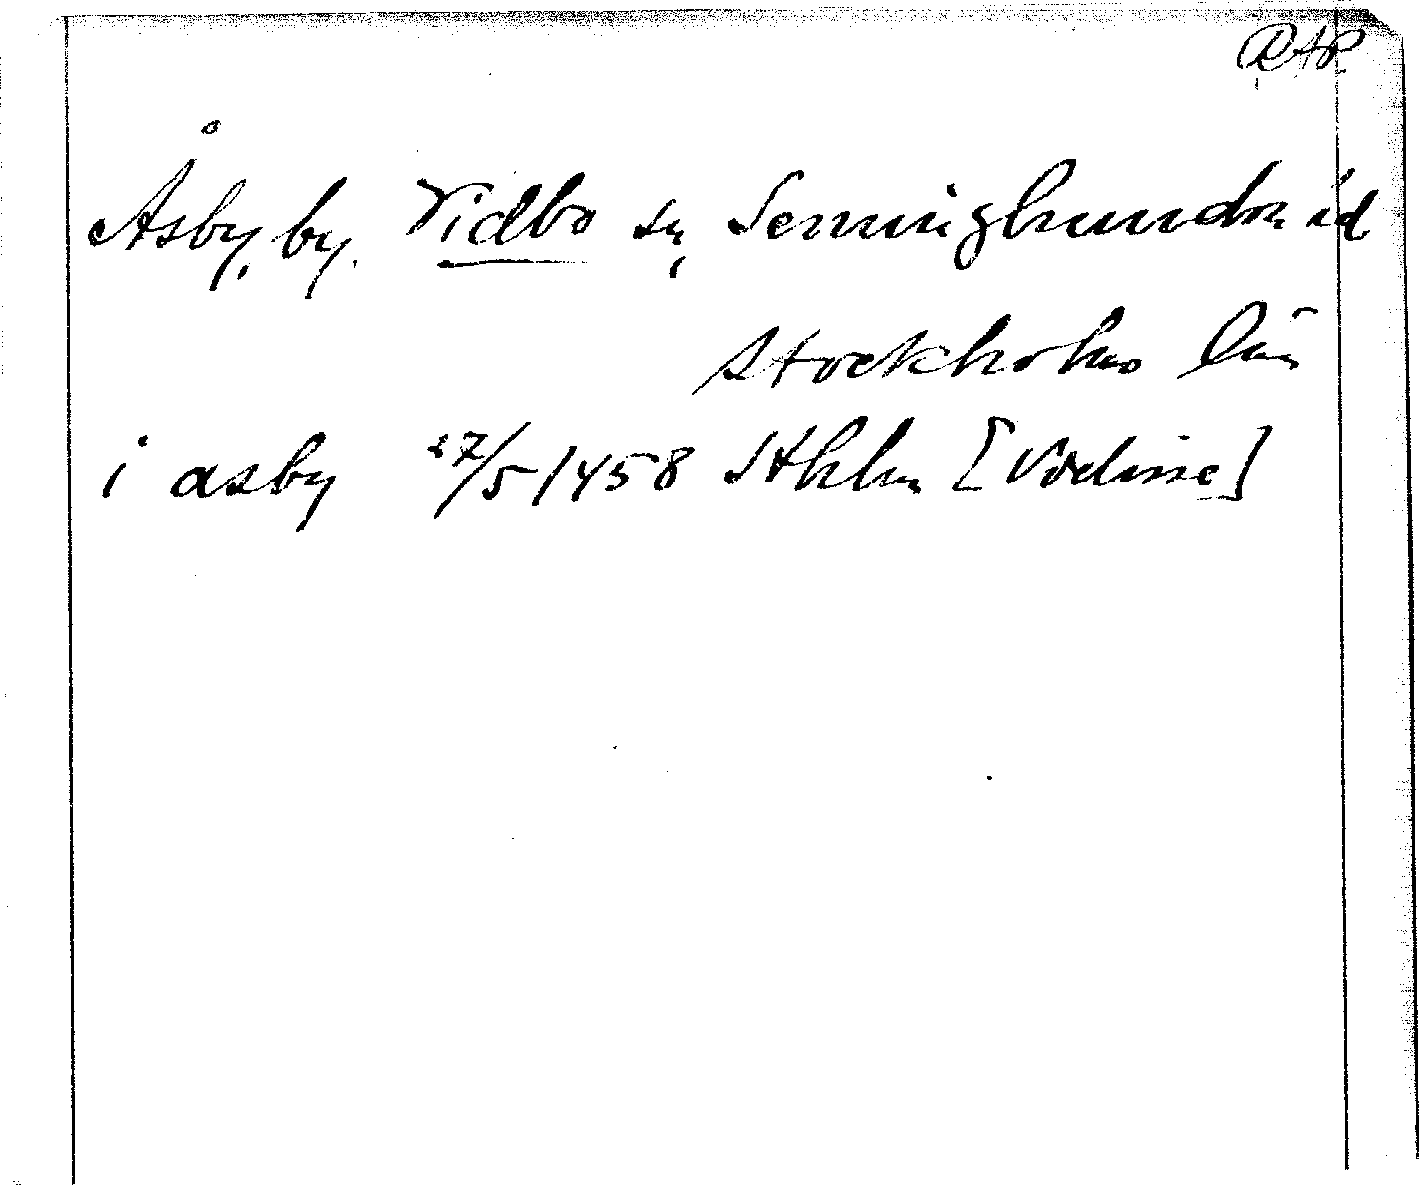 RAP
Åsby, by, Vidbo sn, Seminghundra hd
Stockholms län
i asby 27/5 1458 Sthlm [Vidinse]